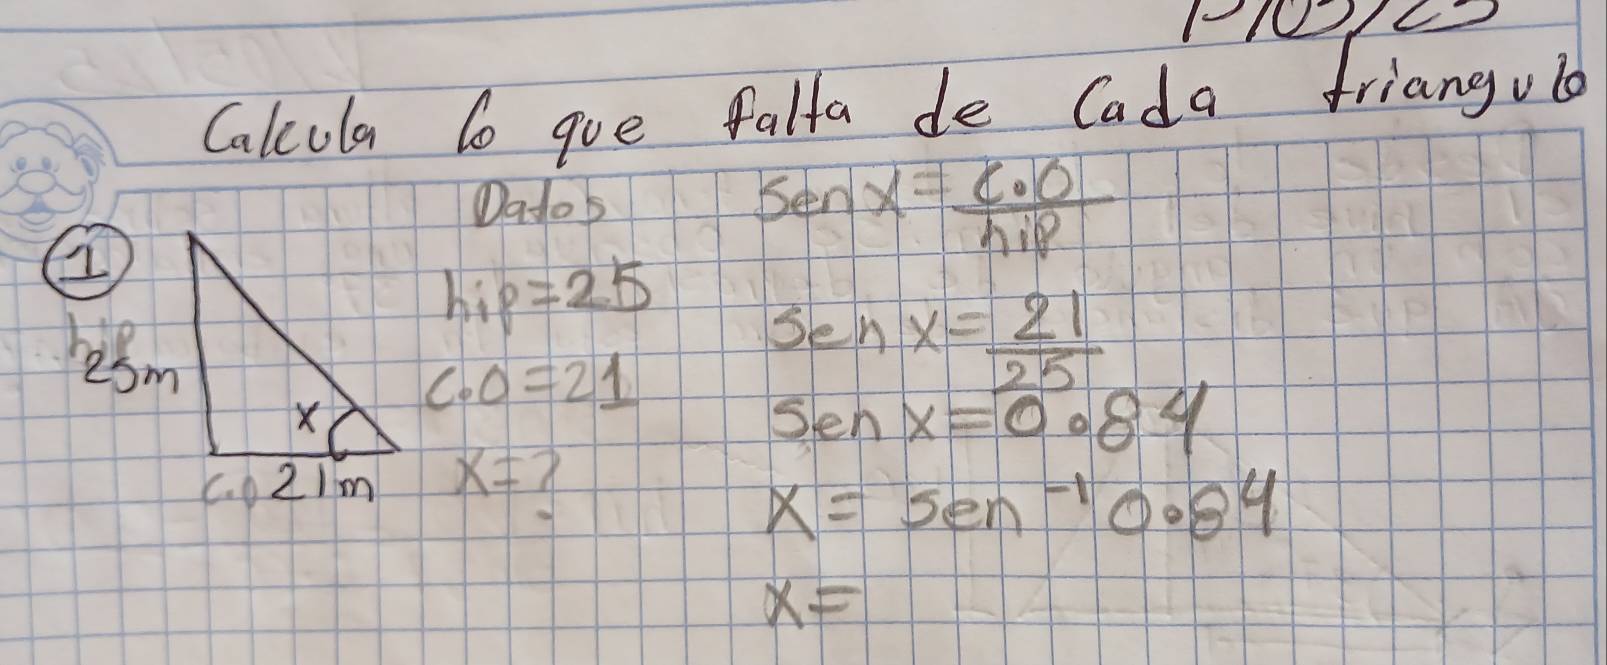 Calcula lo que falta de cada triangulo
Datos
Sen x = C.O / hip
1
hip = 25
hip
25m
Sen x = 21 / 25
C.O = 21
x
Sen x = 0.84
C.O 21m
x = ?
x = sen⁻¹ 0.84
x =